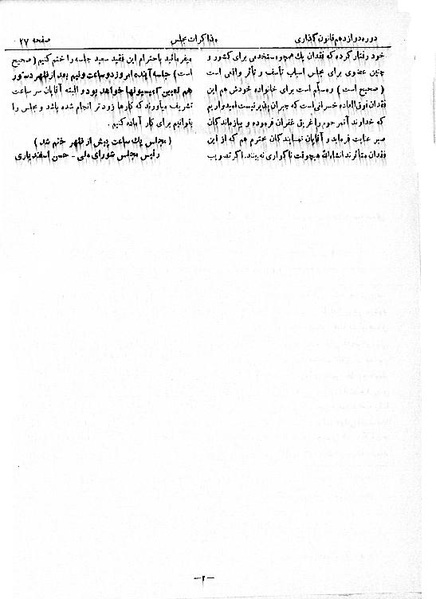 دوره دوازدهم قانون گذاری
مذاکرات مجلس
صفحه ۲۷
خود رفتار کرده که فقدان یك همچو مستخدمی برای کشور و
چنین عضوی برای مجلس اسباب تأسف و تأثر واقعی است
(صحیح است) و مسلم است برای خانواده خودش هم این
فقدان فوق‌العاده خسرانی است که جبران پذیر نیست امیدواریم
که خداوند آنمرحوم را غریق غفران فرموده و بازماندگان
صبر عنایت فرماید و آقایان نمایندگان محترم هم که از این
فقدان متأثرند انشاءالله هیچوقت ناگواری نه‌بینند. اگر تصویب
میفرمائید باحترام این فقید سعید جلسه را ختم کنیم (صحیح
است) جلسه آینده امروز دو ساعت و نیم بعد از ظهر دستور
هم تعیین کمیسیونها خواهد بود و البته آقایان سر ساعت
تشریف میاورند که کارها زودتر انجام شده باشد و مجلس را
بتوانیم برای کار آماده کنیم.
(مجلس یك ساعت پیش از ظهر ختم شد)
رئیس مجلس شورای ملی - حسن اسفندیاری
-۲-